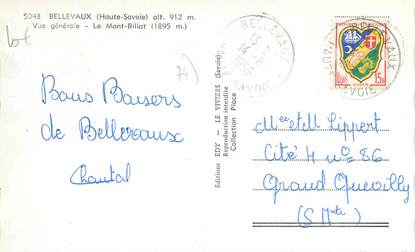 5043 BELLEVAUX (Haute-Savoie) alt. 912 m.
Vue générale - Le Mont-Billat (1895 m.)
74)
Bons Baisers
de Bellevaux
Chantal
Editions EDY - LE VIVIERS (Savoie)
Reproduction interdite
Collection Place
BELLEVAUX
SAVOIE
BELLEVAUX
SAVOIE
15F
Mr et Mme Lippert
Cité H n° 86
Grand Quevilly
(S Mme)